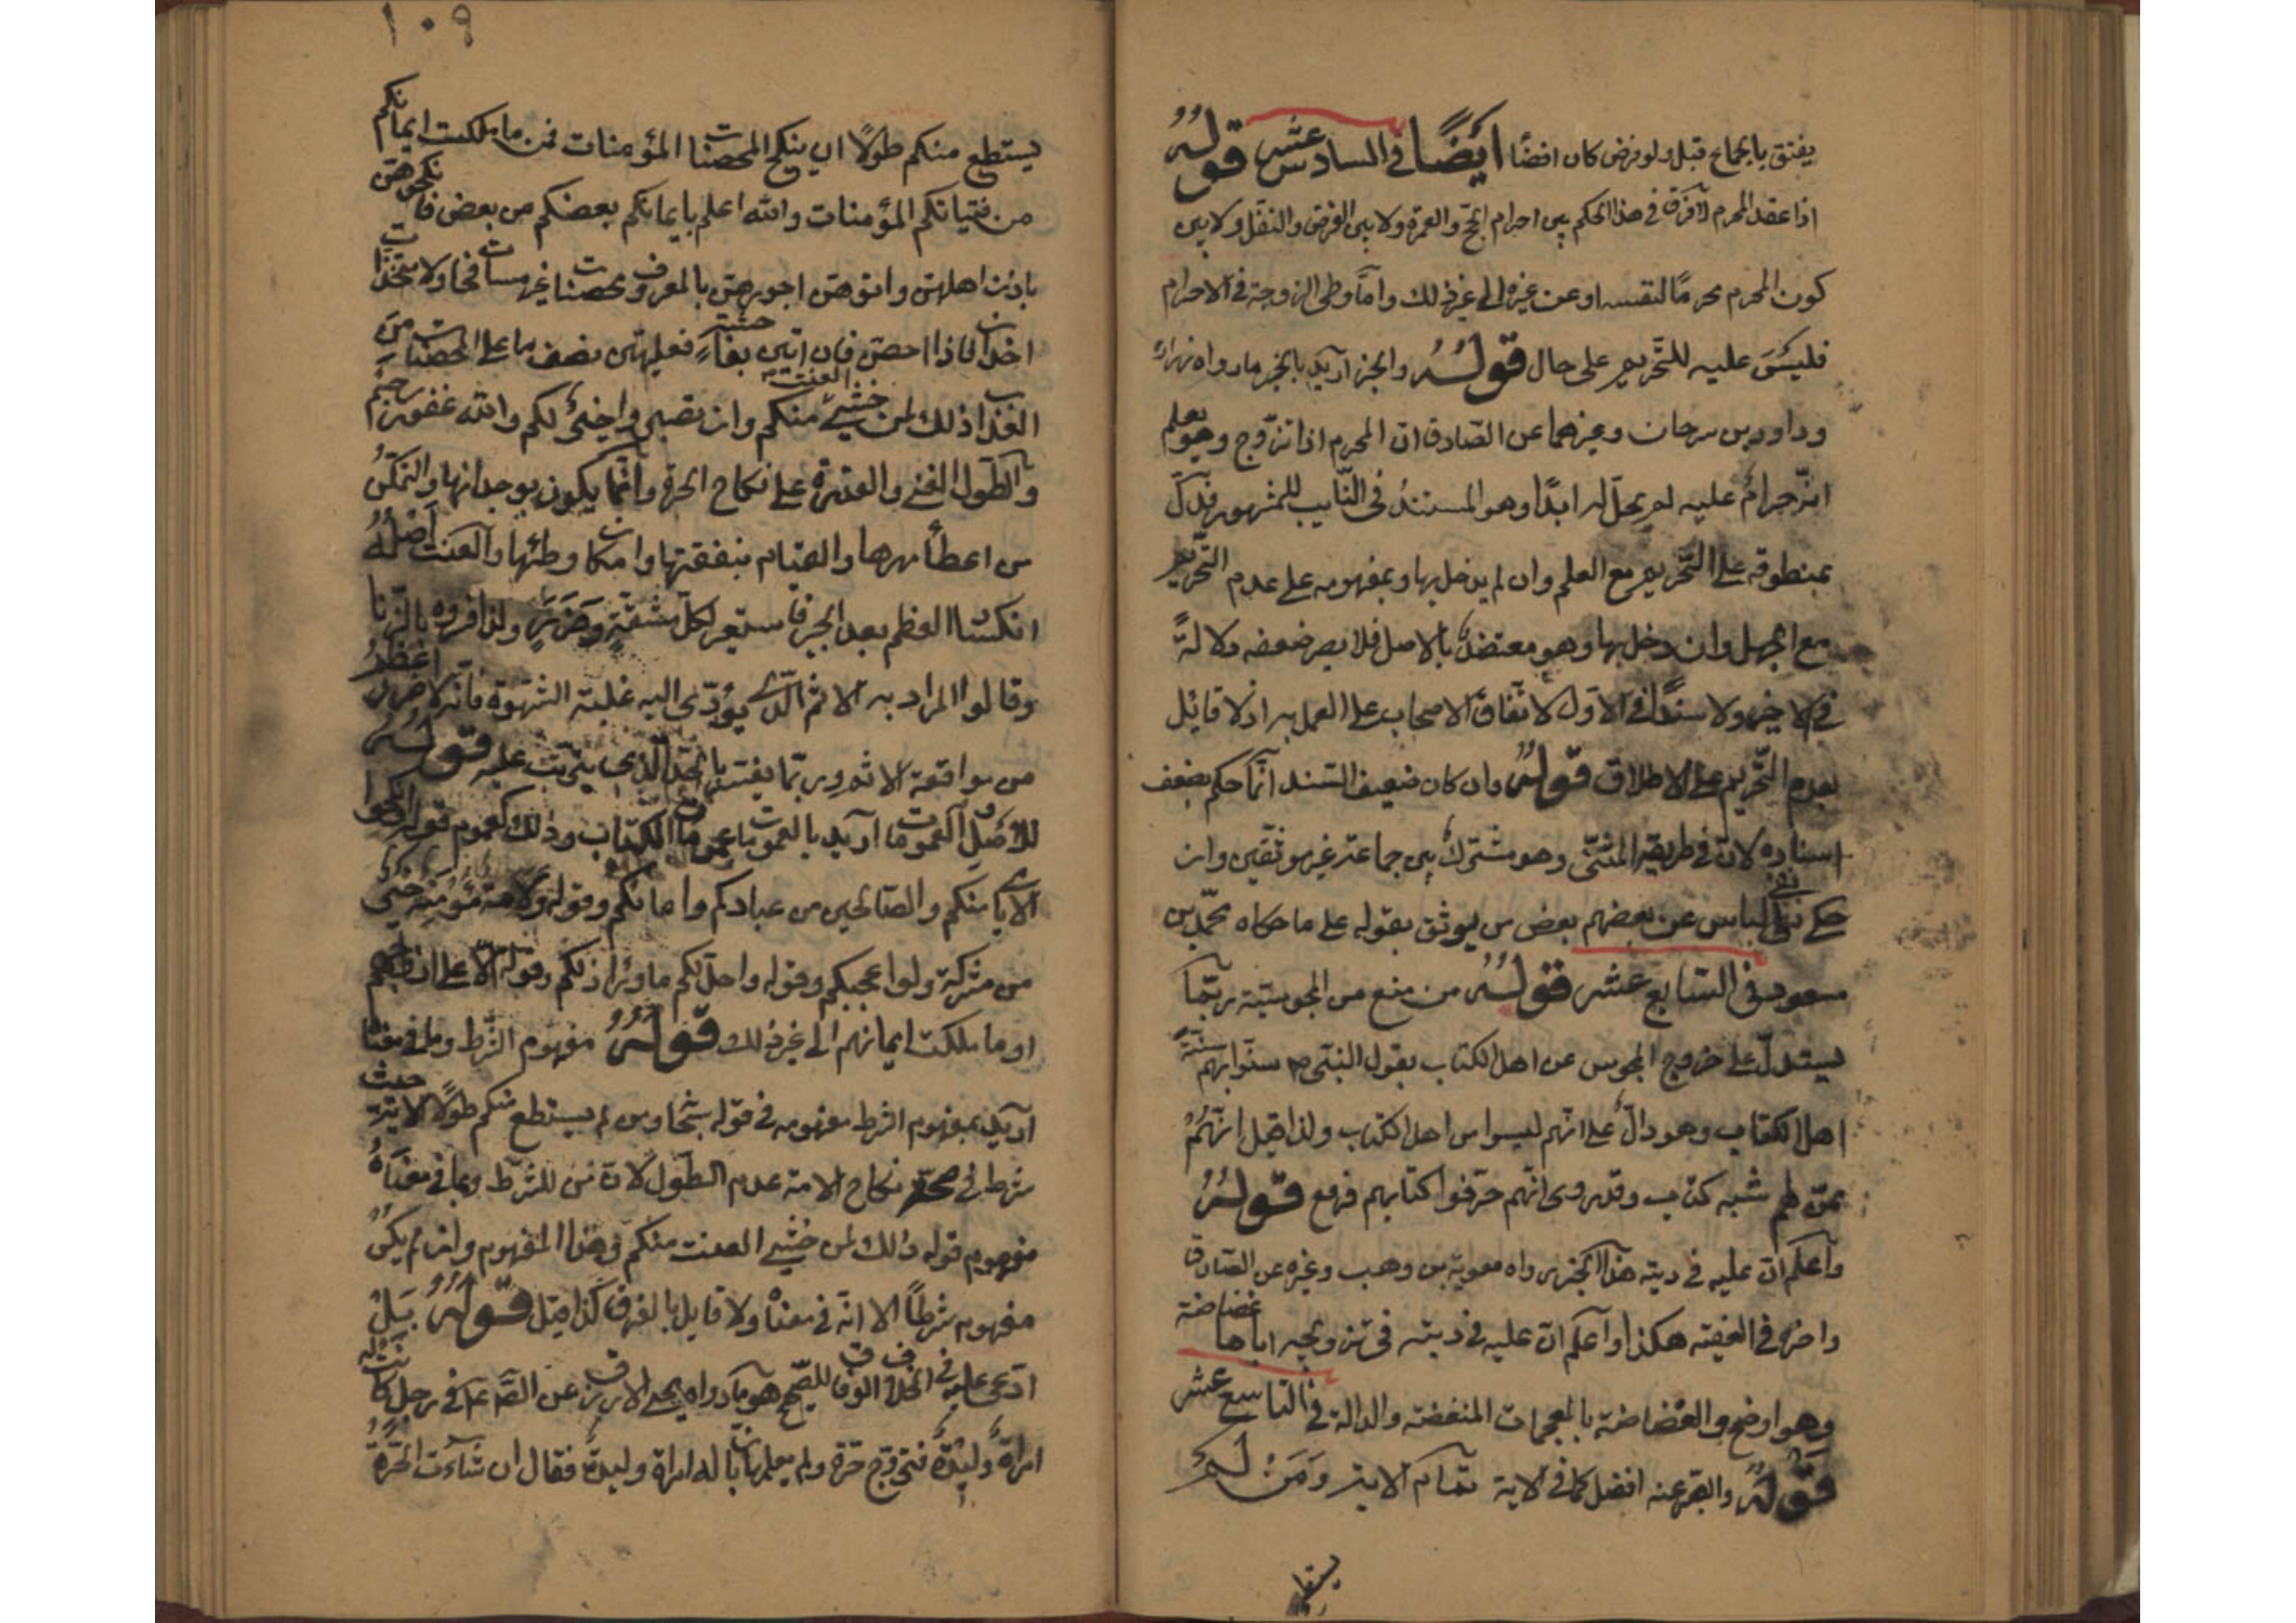 يفتق بالجماع قبل ولو فرض كان افضا ايضًا في السادس عشر قولهُ
اذا عقد المحرم لا فرق في هذا الحكم بين احرام الحج والعمرة ولا بين الفرض والنفل ولا بين
كون المحرم محرمًا لنفسه او عن غيره الى غير ذلك وامّا وطى الزوجة في الاحرام
فليسَ عليه للتحريم على حال قولهُ والخبر اريد بالخبر ما رواه زرارة
وداود بن سرحان وغيرهما عن الصّادق انّ المحرم اذا تزوّج وهو يعلم
انّه حرامٌ عليه لم يحلّ له ابدًا وهو المستندُ في التأييد للمشهور فيدلّ
بمنطوقه على التّحريم مع العلم وان لم يدخل بها وبمفهومه على عدم التّحريم
مع الجهل وان دخل بها وهو معتضدٌ بالاصل فلا يضر ضعفه دلالةً
في الاخير ولا سندًا في الاوّل لاتّفاق الاصحاب على العمل به اذ لا قائل
بعدم التّحريم على الاطلاق قولهُ وان كان ضعيف السّند انّما حكم بضعف
اسناده لانّ في طريقه المثنّى وهو مشترك بين جماعة غير موثّقين وان
حكى نفى الباس عن بعضهم بعض من يوثق بقوله على ما حكاه محمّد بن
مسعود في السّابع عشر قولهُ من منع من المجوسيّة ربّما
يستدلّ على خروج المجوس عن اهل الكتاب بقول النبّى ص سنّوا بهم سنّةً
اهل الكتاب وهو دالّ على انّهم ليسوا من اهل الكتاب ولذا قيل انّهُمُ
ممّن لهم شبه كتاب وقد روى انّهم حرّفوا كتابهم فرفع قولهُ
واعلم انّ عليه في ديته هذا الخبر رواه معوية بن وهب وغيره عن الصّادق
واخره في الفقيه هكذا واعلم انّ عليه في دينه في تزويجه اياها غضاضة
وهو اوضح والغضاضة بالمعجمات المنقصة والدالة في التاسع عشر
قولهُ والصّبر عنه افضل كما في الاية تمام الاية ومَن لَم
يستطع
١٠٩
يستطع منكم طولًا ان ينكح المحصنات المؤمنات فمن ما ملكت ايمانكم
من فتياتكم المؤمنات والله اعلم بايمانكم بعضكم من بعض فانكحوهنّ
باذن اهلهنّ واتوهنّ اجورهنّ بالمعروف محصنات غير مسافحات ولا متّخذات
اخدان فاذا احصنّ فان اتين بفاحشةٍ فعليهنّ نصف ما على المحصنات من
العذاب ذلك لمن خشى العنت منكم وان تصبروا خيرٌ لكم والله غفور رحيم
والطّول الغنى والقدرة على نكاح الحرة وانّما يكون بوجدانها والتمكّن
من اعطاء مهرها والقيام بنفقتها وامكان وطئها والعنت اصلُهُ
انكسار العظم بعد الجبر فاستعير لكلّ مشقّةٍ وضَررٍ ولذا فسّروه بالزّنا
وقالوا المراد به الاثم الّذى يؤدّى اليه غلبة الشّهوة فانّه لا ضرر اعظمُ
من مواقعة الاثم وربّما يفسّر بالحدّ الّذى يترتّب عليه قولهُ
للاصل العمومات اريد بالعمومات عمومات الكتاب وذلك كعموم قوله وانكحوا
الايامى منكم والصّالحين من عبادكم وامائكم وقوله ولامة مؤمنة خيرٌ
من مشركة ولو اعجبتكم وقوله واحلّ لكم ما وراء ذلكم وقوله الّا على ازواجهم
او ما ملكت ايمانهم الى غير ذلك قولهُ مفهوم الشّرط وما في معناه
اريد بمفهوم الشرط مفهومه في قوله تعالى ومن لم يستطع منكم طولًا الاية حيث
شرط في صحّة نكاح الامة عدم الطّول لانّ من للشرط وبما في معناهُ
مفهوم قوله ذلك لمن خشى العنت منكم وهذا المفهوم وان لم يكن
مفهوم شرطًا الا انّه في معناه ولا قايل بالفرق كذا قيل قولهُ بَل
ادّعى عليه في الخلاف الوفاق للصّحيح هو ما رواه يحيى الازرق عن الصّ عم في رجل كانت له
امراةٌ وليدةٌ فتزوّج حرّة ولم يعلمها بانّ له امراة وليدةٌ فقال ان شاءت الحرّةُ